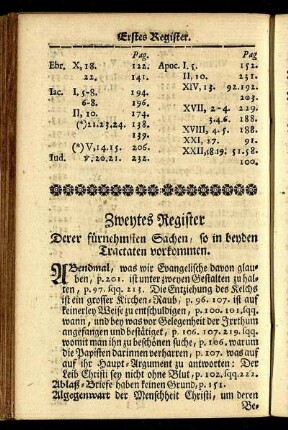 Erstes Register.
Pag.
Ebr. X, 18. 122.
22. 141.
Jac. I, 5-8. 194.
6-8. 196.
II, 10. 174.
(*) 21.23.24. 138.
139.
(*) V, 14.15. 206.
Jud. v. 20.21. 232.
Pag
Apoc. I, 5. 152.
II, 10. 231.
XIV, 13. 92.192.
203.
XVII, 2-4. 229.
3.4.6. 188.
XVIII, 4.5. 188.
XXI, 17. 91.
XXII, 18.19. 51.58.
100.
Zweytes Register
Derer fürnehmsten Sachen, so in beyden
Tractaten vorkommen.
ABendmal, was wir Evangelische davon glau-
ben, p. 201. ist unter zweyen Gestalten zu hal-
ten, p. 97. sqq. 213. Die Entziehung des Kelchs
ist ein grosser Kirchen-Raub, p. 96. 107. ist auf
keinerley Weise zu entschuldigen, p. 100. 101. sqq.
wann, und bey was vor Gelegenheit der Irrthum
angefangen und bestätiget, p. 106. 107. 219. sqq.
womit man ihn zu beschönen suche, p. 106. warum
die Papisten darinnen verharren, p. 107. was auf
auf ihr Haupt-Argument zu antworten: Der
Leib Christi sey nicht ohne Blut, p. 102. sqq. 222.
Ablaß-Briefe haben keinen Grund, p. 151.
Allgegenwart der Menschheit Christi, um deren
Be-